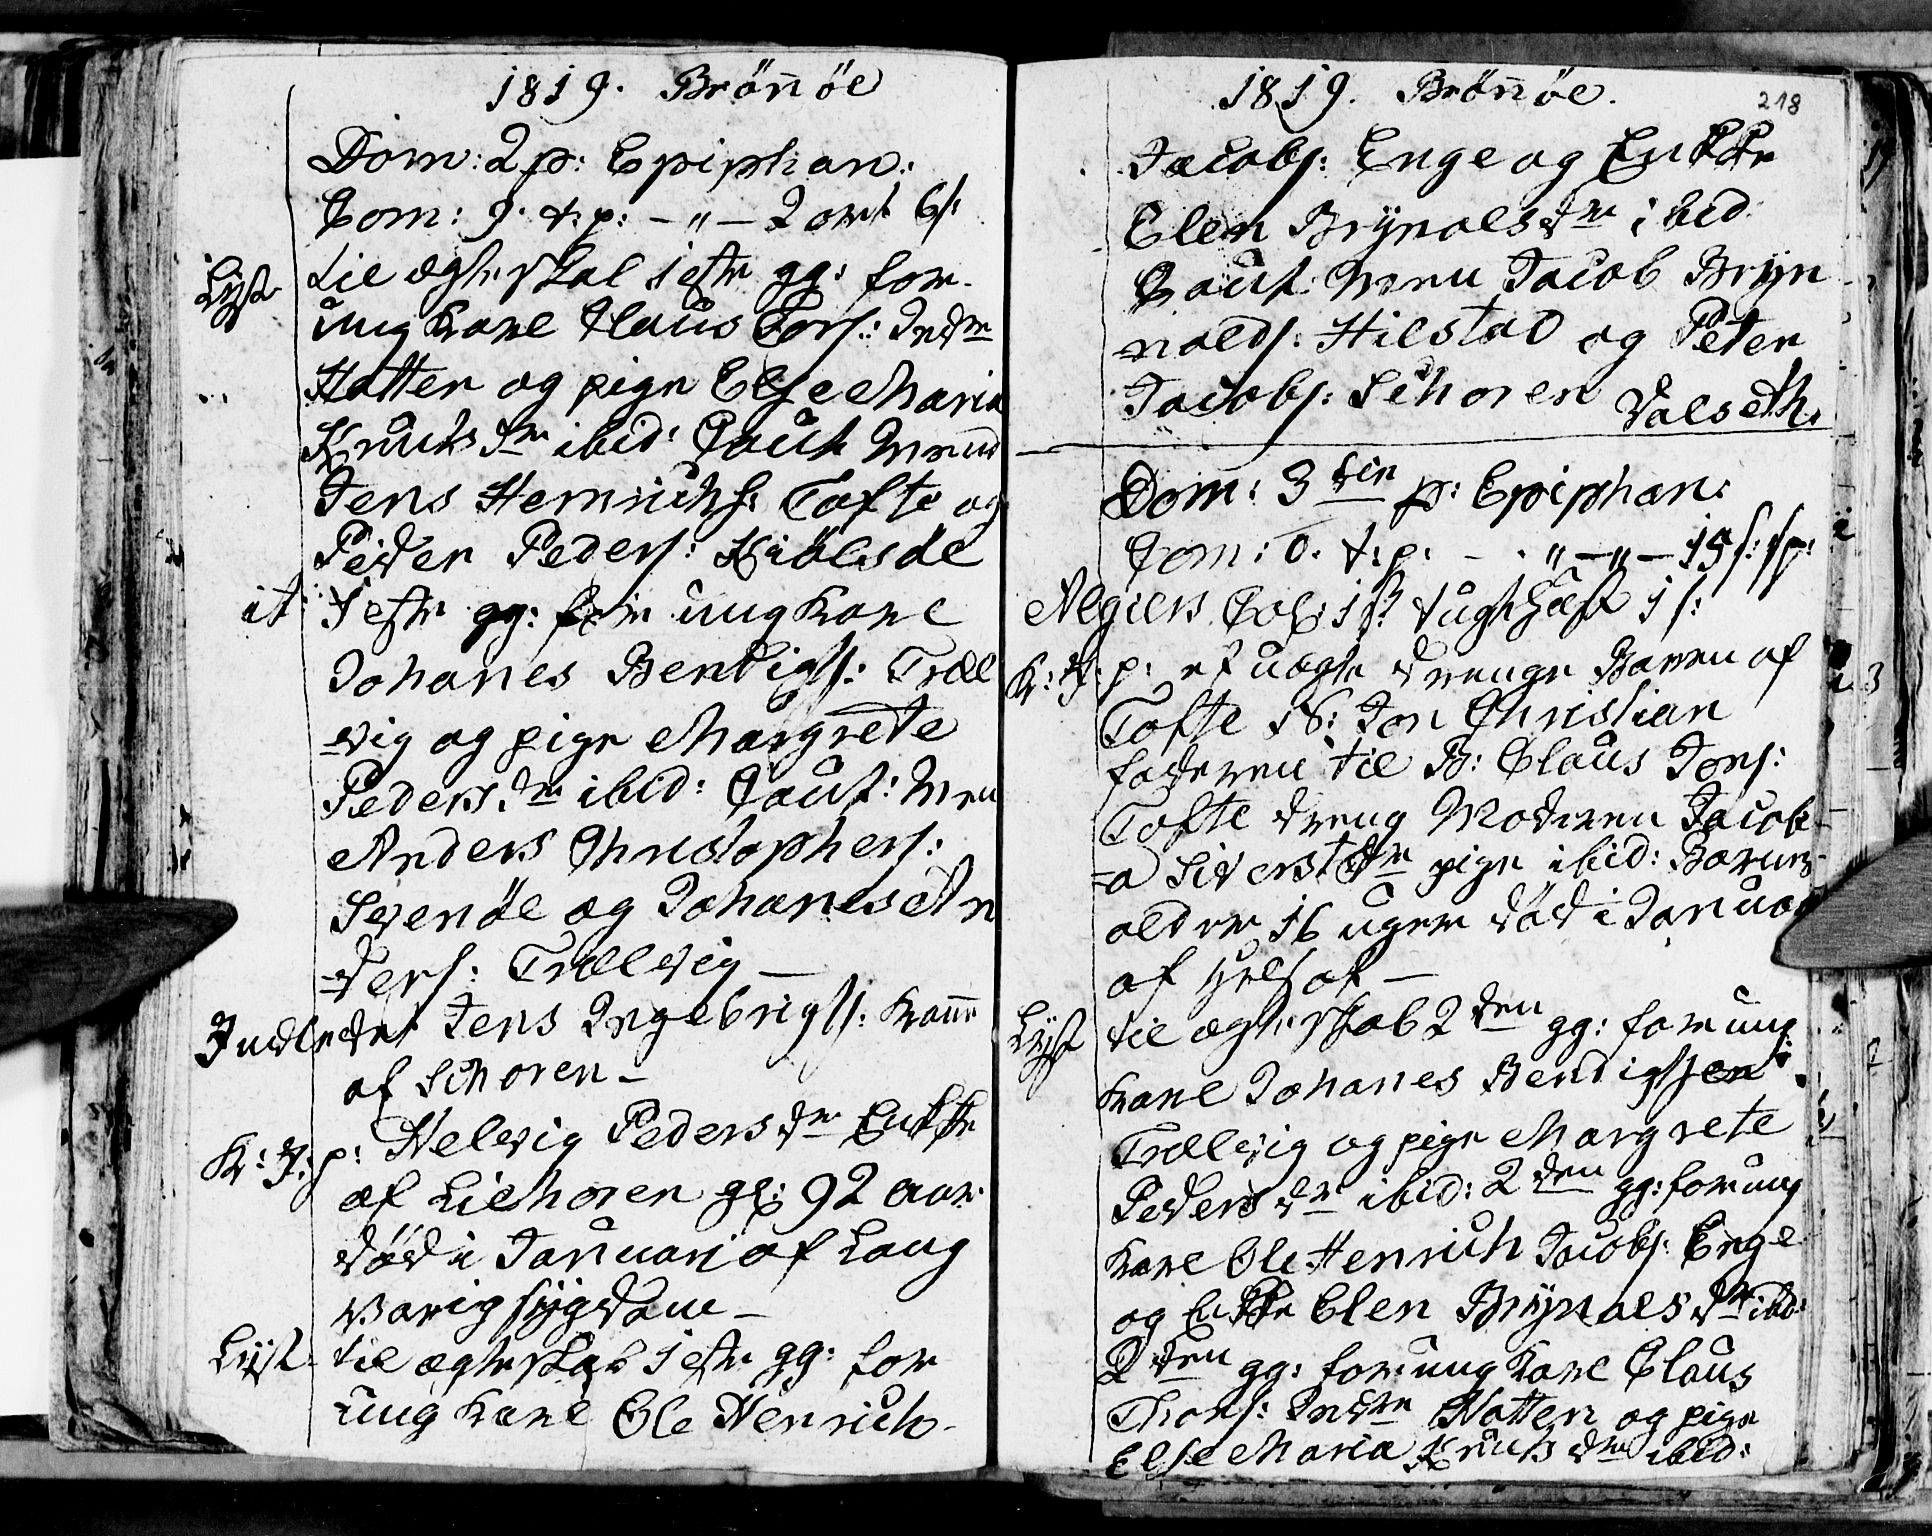 1819. Brönöe
Dom: 2 p: Epiphan:
Com: 9. t: p: - " - 2 ort 6 s:
Lyst til ægteskab 1ste gg: for
ung Karl Claus Tors: Indre
Hatten og pige Else Maria
Knuds dr ibid: Caut Mænd
Jens Henrichs: Tofte og
Peder Peders: Kiölsöe
it: 1ste gg: for ung Karl
Johanes Bendigts: Træl
vig og pige Margrete
Peders dr ibid: Caut: Mæn
Anders Christophers:
Svenöe og Johanes An
ders: Trælvig —
Indledet Jens Ingebrigts: Kone
af Schoren —
K: J: p: Helvig Peders dr Enke
af Liehoren gl: 92 Aar
död i Januari af Lang
varig sygdom —
Lyst til ægteskab 1ste gg: for
ung Karl Ole Henrich
1819. Brönöe.
218
Jacobs: Enge og Enke
Elen Brynals dr ibid
Caut: Mæn Jacob Bryn
nolds: Hilstad og Peter
Jacobs: Schoren Valseth.
Dom: 3die p: Epiphan:
Com: 0. t: p. - . " - " - 15 s: sp:
Algiers Col: 1 s: Tugthuset 1 s:
K: J: p: et uægte drenge Barn af
Tofte N: Jon Christian
faderen til B: Claus Jons:
Tofte dreng Moderen Jacob
a Siversdr pige ibid: Barnets
alder 16 uger död i Januar
af
Lyst til ægteskab 2den gg: for ung
Karl Johanes Bendigtsen
Trælvig og pige Margrete
Peders dr ibid: 2den gg: for ung
Karl Ole Henrich Jacobs: Enge
og Enke Elen Brynals dr ibid:
2den gg: for ung Karl Claus
Thors: Indre Hatten og pige
Else Maria Knuds dr ibid: